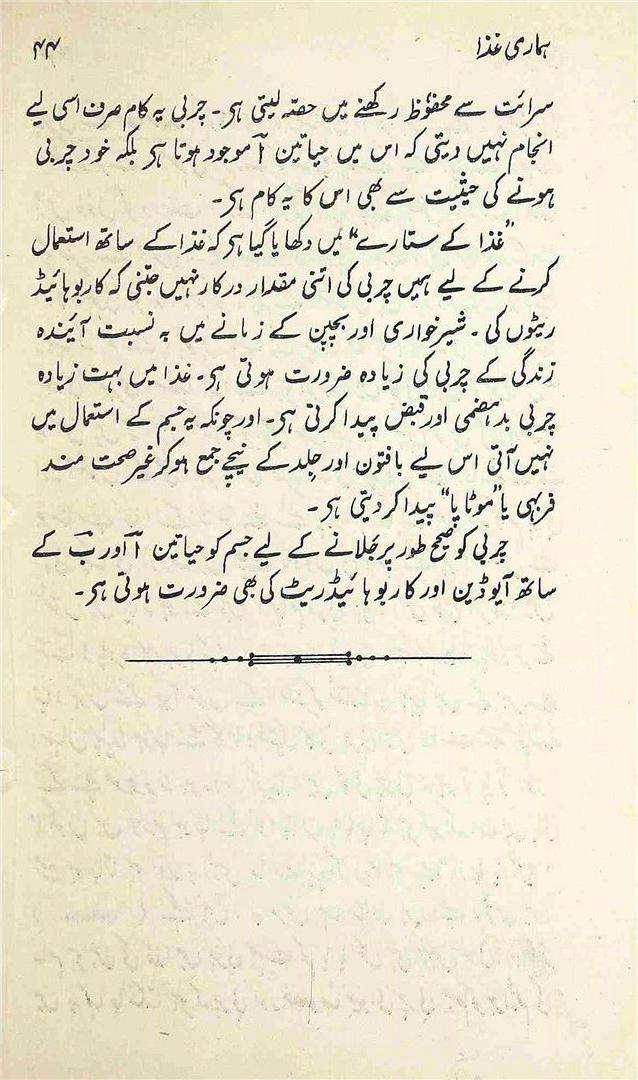 ہماری غذا ۴۴
سرائت سے محفوظ رکھنے میں حصّہ لیتی ہر۔ چربی یہ کام صرف اسی لیے
انجام نہیں دیتی کہ اس میں حیاتین آ موجود ہوتا ہر بلکہ خود چربی
ہونے کی حیثیت سے بھی اس کا یہ کام ہر۔
"غذا کے ستارے" میں دکھایا گیا ہر کہ غذا کے ساتھ استعمال
کرنے کے لیے ہمیں چربی کی اتنی مقدار درکار نہیں جتنی کہ کاربوہائیڈ
ریٹوں کی۔ شیرخواری اور بچپن کے زمانے میں بہ نسبت آیندہ
زندگی کے چربی کی زیادہ ضرورت ہوتی ہر۔ غذا میں بہت زیادہ
چربی بدہضمی اور قبض پیدا کرتی ہر۔ اور چونکہ یہ جسم کے استعمال میں
نہیں آتی اس لیے بافتون اور جِلد کے نیچے جمع ہوکر غیر صحت مند
فربہی یا "موٹاپا" پیدا کر دیتی ہر۔
چربی کو صحیح طور پر جَلانے کے لیے جسم کو حیاتین آ اور بَ کے
ساتھ آیوڈین اور کاربوہائیڈریٹ کی بھی ضرورت ہوتی ہر۔